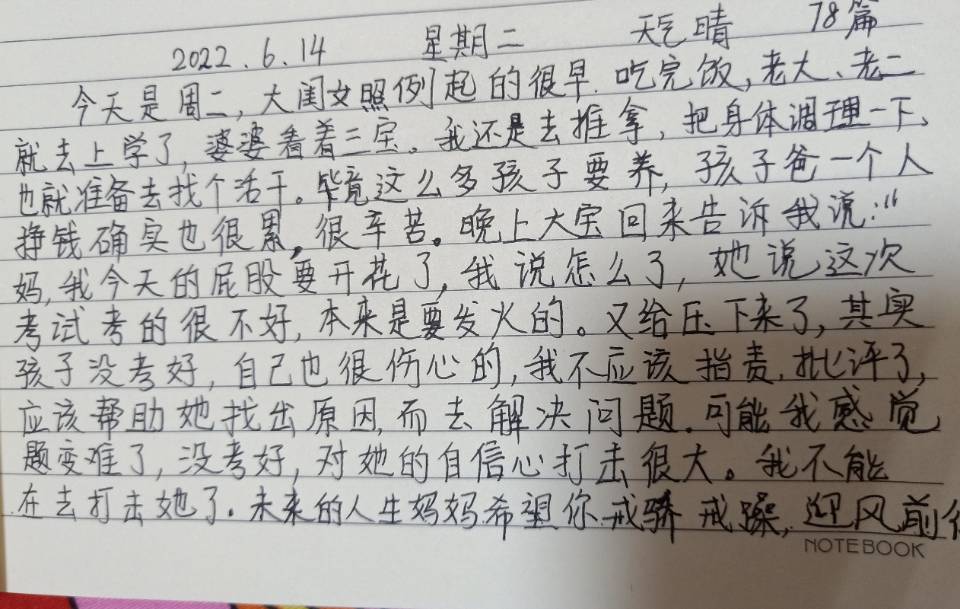 2022.6.14 星期二 天气晴 78篇
今天是周二,大闺女照例起的很早.吃完饭,老大、老二
就去上学了,婆婆看着三宝。我还是去推拿,把身体调理一下、
也就准备去找个活干。毕竟这么多孩子要养,孩子爸一个人
挣钱确实也很累,很辛苦。晚上大宝回来告诉我说:“
妈,我今天的屁股要开花了,我说怎么了,她说这次
考试考的很不好,本来是要发火的。又给压下来了,其实
孩子没考好,自己也很伤心的,我不应该指责.批评了,
应该帮助她找出原因,而去解决问题.可能我感觉
题变难了,没考好,对她的自信心打击很大。我不能
在去打击她了.未来的人生妈妈希望你戒骄戒躁,迎风前
NOTEBOOK